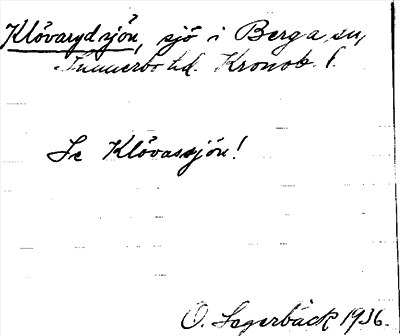 Klövarydsjön, sjö i Berga sn,
Sunnerbo hd. Kronob. l.
Se Klövassjön!
O. Sagerbäck 1936.